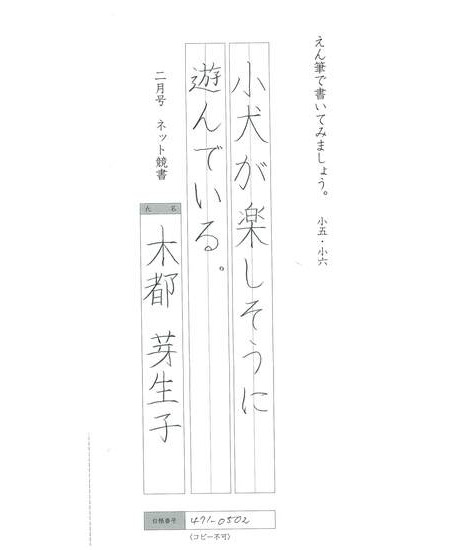 えん筆で書いてみましょう。 小五・小六
小犬が楽しそうに
遊んでいる。
二月号 ネット競書
氏名
木都 芽生子
台帳番号 471-0502
(コピー不可)